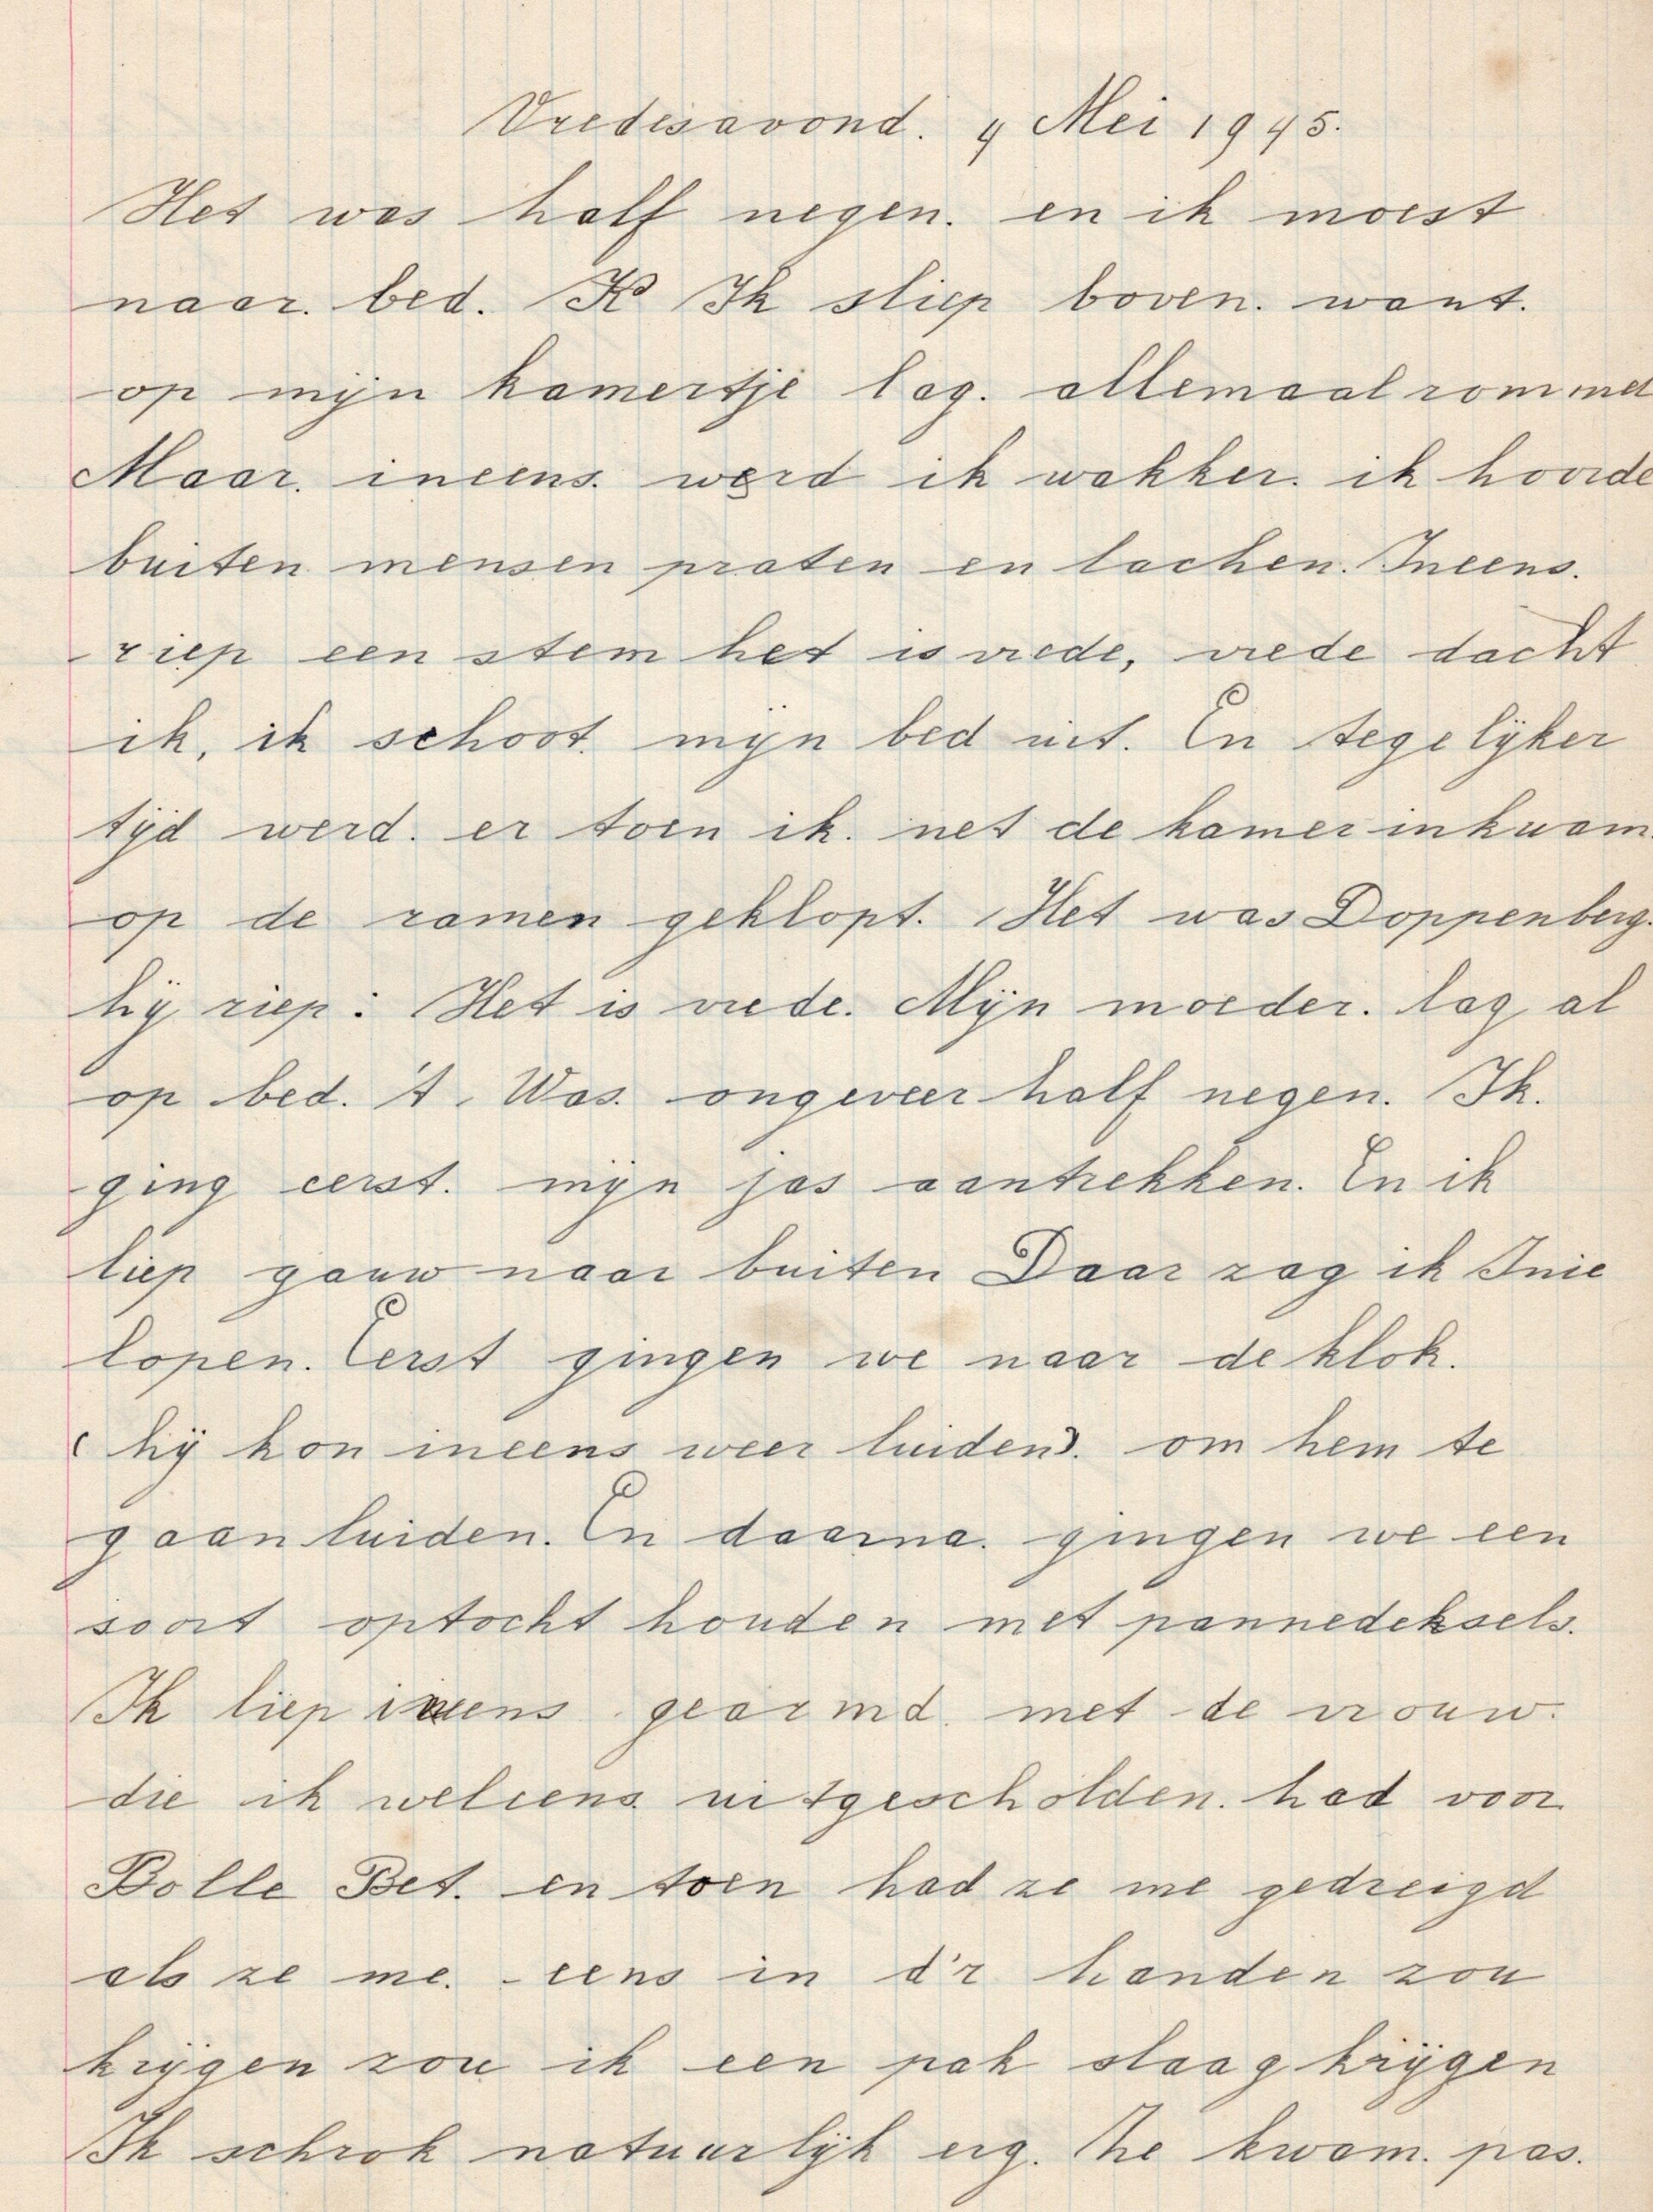 Vredesavond. 4 Mei 1945.
Het was half negen. en ik moest
naar. bed. K Ik sliep boven. want.
op mijn kamertje lag. allemaal rommel
Maar. ineens. werd ik wakker. ik hoorde
buiten mensen praten en lachen. Ineens.
riep een stem het is vrede, vrede dacht
ik, ik schoot. mijn bed uit. En tegelijker
tijd werd. er toen ik. net de kamer inkwam.
op de ramen geklopt. Het was Doppenberg.
hij riep: Het is vrede. Mijn moeder. lag al
op bed. 't. Was. ongeveer half negen. Ik.
ging eerst. mijn jas aantrekken. En ik
liep gauw naar buiten Daar zag ik Inie
lopen. Eerst gingen we naar de klok.
(hij kon ineens weer luiden). om hem te
gaan luiden. En daarna. gingen we een
soort optocht houden met pannedeksels.
Ik liep ineens gearmd. met de vrouw.
die ik weleens uitgescholden. had voor
Bolle Bet. en toen had ze me gedreigd
als ze me. eens in d'r handen zou
krijgen zou ik een pak slaag krijgen
Ik schrok natuurlijk erg. Ze kwam. pas.